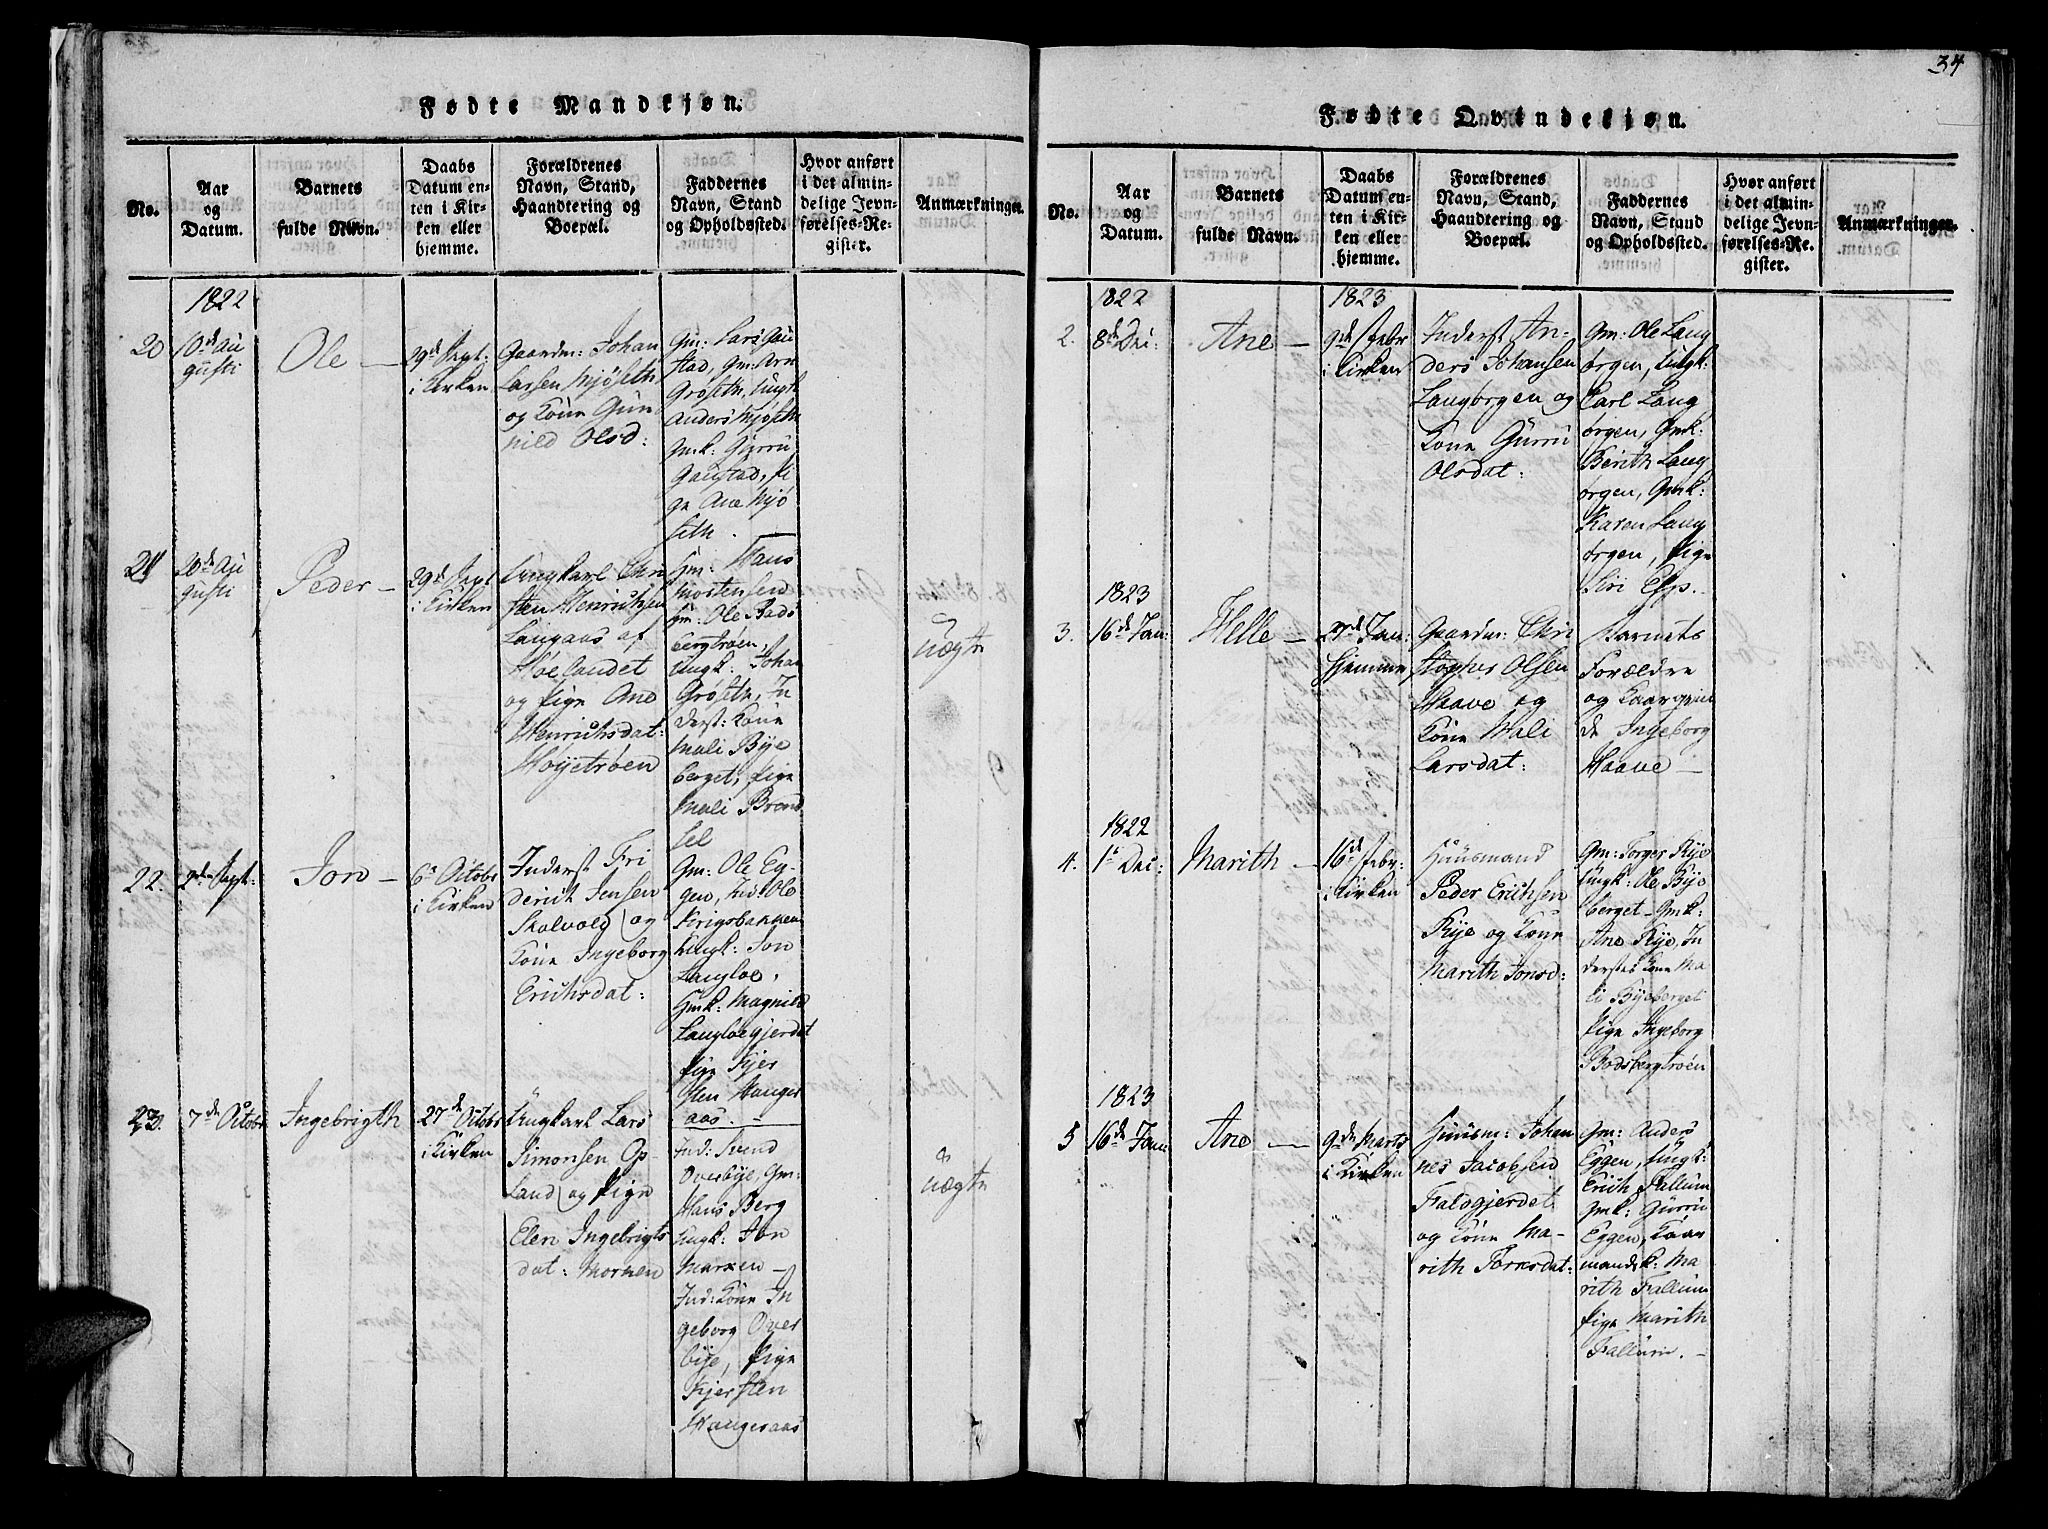 34
Fødte Mandkjøn.
No.
Aar
og
Datum.
Barnets
fulde Navn.
Daabs
Datum en-
ten i Kir-
ken eller
hjemme.
Forældrenes
Navn, Stand,
Haandtering og
Boepæl.
Faddernes
Navn, Stand
og Opholdssted.
Hvor anført
i det almin-
delige Jevn-
førelses-Re-
gister.
Anmærkninger.
1822
20
10de Au
gusti
Ole
29de Sept:
i Kirken
Gaardm: Johan
Larsen Mjøseth
og Kone Gun
nild Olsd:
Gm: Lars Gau
stad, Gm: Arn
Grøseth, Ungk:
Anders Mjøseth
Gmk: Gurru
Gaustad, Pi
ge Ane Mjø
seth.
21
20de Au
gusti
Peder
29de Sept
i Kirken
Ungkarl Chri
sten Henrichsen
Langaas af
Høelandet
og Pige Ane
Henrichsdat:
Høyetrøen
Gm: Hans
Mortensen
Gm: Ole Bads
bergtrøen,
Ungk: Johan
Grøseth, In
derst: Kone
Mali Bye
berget, Pige
Mali Brend
sel
Uægte
22.
2de Sept:
Jon
6te Octobr
i Kirken
Inderst Fri
derich Jensen
Skolvold og
Kone Ingeborg
Erichsdat:
Gm: Ole Eg-
gen, Ole
Krigsbakken
Ungk: Jon
Langloe,
Gmk: Magnild
Langloegjerdet
Pige Kjer
sten Hanger
aas.
23.
7de Octobr
Ingebrigth
27de Octobr
i Kirken
Ungkarl Lars
Simonsen Op
land og Pige
Elen Ingebrigts
dat: Morken
Ind: Svend
Overbye, Gm:
Hans Berg
Ungk: Jon
Marken
Ind: Kone In
geborg Over
bye, Pige
Kjersten
Hangeraas
Uægte
Fødte Qvindekjøn.
No.
Aar
og
Datum.
Barnets
fulde Navn.
Daabs
Datum en-
ten i Kir-
ken eller
hjemme.
Forældrenes
Navn, Stand,
Haandtering og
Boepæl.
Faddernes
Navn, Stand
og Opholdssted.
Hvor anført
i det almin-
delige Jevn-
førelses-Re-
gister.
Anmærkninger.
1822
1823
2.
8de Dec:
Ane
9de Febr
i Kirken
Inderst An-
ders Johansen
Langørgen og
Kone Gurru
Olsdat:
Gm: Ole Lang
ørgen, Ungk:
Carl Lang
ørgen, Gmk:
Berith Lang
ørgen, Gmk:
Karen Lang
ørgen, Pige
Siri Esp.
1823
3.
16de Jan:
Helle
27de Jan:
Hjemme
Gaardm: Chri
stopher Olsen
Haave og
Kone Mali
Larsdat:
Barnets
Forældre
og Kaarqvin
de Ingeborg
Haave
1822
4.
1te Dec:
Marith
16de Febr:
i Kirken
Huusmand
Peder Erichsen
Rye og Kone
Marith Jonsd:
Gm: Torger Rye
Ungk: Ole Bye
berget Gmk:
Ane Rye, In
derstes Kone Ma
li Byeberget
Pige Ingeborg
Badsbergtrøen
1823
5
16de Janu
Ane
9de Marts
i Kirken
Huusm: Johan
nes Jacobsen
Falsgjerdet
og Kone Ma-
rith Torksdat:
Gm: Anders
Eggen, Ungk:
Erich Fallum
Gmk: Gurru
Eggen, Kaar
mandsk: Ma
rith Fallum
Pige Marith
Fallum.